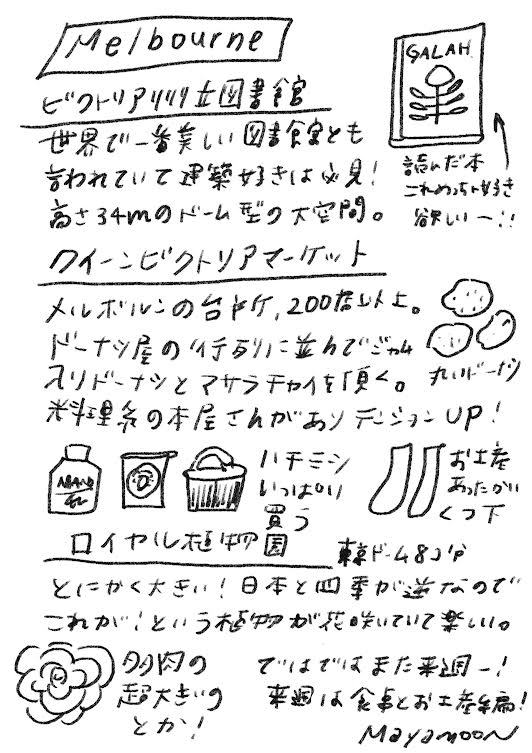 Melbourne
ビクトリア州立図書館
世界で一番美しい図書館とも
言われていて建築好きは必見!
高さ34mのドーム型の大空間。
GALAH
読んだ本
これめっちゃ好き
欲しいー!!
クイーンビクトリアマーケット
メルボルンの台所, 200店以上。
ドーナツ屋の行列に並んでジャム
入りドーナツとマサラチャイを頂く。
丸いドーナツ
料理系の本屋さんがありテンションUP!
ハチミツ
いっぱい
買う
お土産
あったかい
くつ下
ロイヤル植物園
東京ドーム8コ分
とにかく大きい!日本と四季が逆なので
これが!という植物が花咲いていて楽しい。
多肉の
超大きいの
とか!
ではではまた来週ー!
来週は食事とお土産編!
Mayamoon